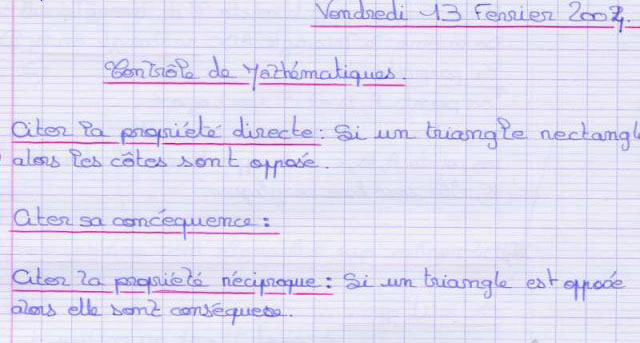 Vendredi 13 Fevrier 2004.
Contrôle de Mathématiques.
Citer la propriété directe : Si un triangle rectangl
alors les côtes sont opposé.
Citer sa concéquence :
Citer la propriété réciproque : Si un triangle est opposée
alors elle sont conséquese.